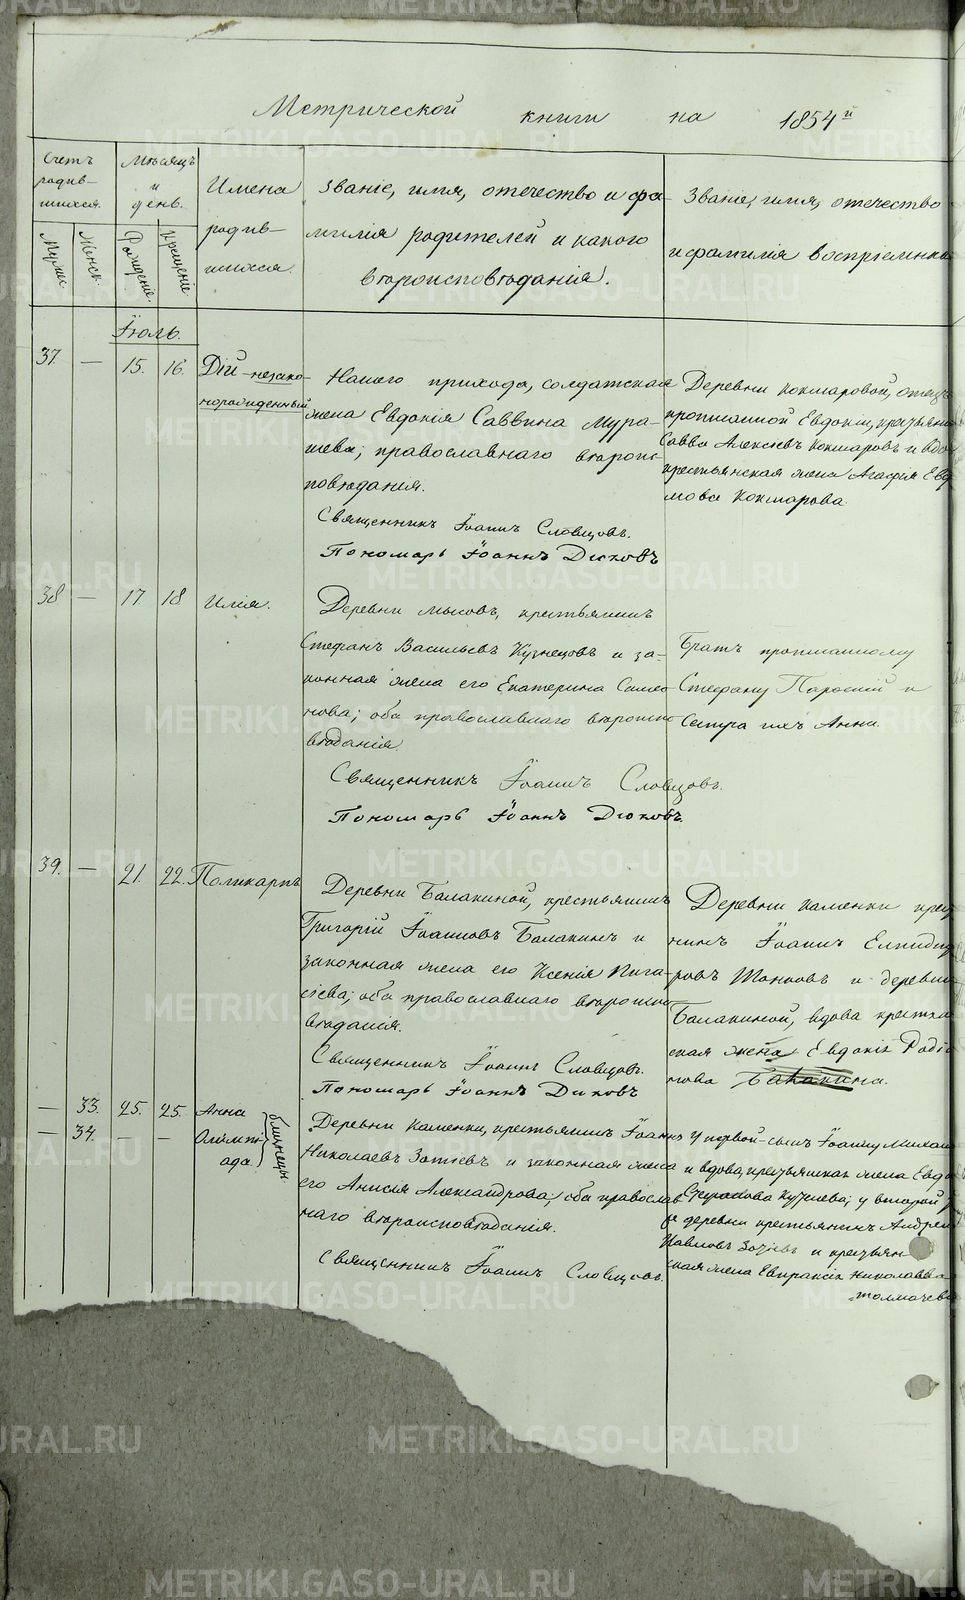 Метрической книги на 1854й
Счетъ родив-шихся.
Мѣсяцъ и день.
Имена родив-шихся.
Званіе, имя, отечество и фа-
милія родителей и какого
вѣроисповѣданія.
Званіе, имя, отечество
и фамилія воспріемник
Мужск.
Женск.
Рожденіе
Крещеніе
Іюль.
37. — 15. 16. Дій-незако-
норожденный
Нашего прихода, солдатская
жена Евдокія Саввина Мура-
шева; православнаго вѣроис-
повѣданія.
Священникъ Іоаннъ Словцовъ.
Пономарь Іоаннъ Дюковъ
Деревни Кокшаровой, отецъ
прописанной Евдокіи, крестьян
Савва Алексѣевъ Кокшаровъ и
крестьянская жена Агафія Евд
мова Кокшарова
38 — 17 18 Илія.
Деревни Мысовъ, крестьянинъ
Стефанъ Васильевъ Кузнецовъ и за-
конная жена его Екатерина Симео
нова; оба православнаго вѣроиспо
вѣданія.
Священникъ Іоаннъ Словцовъ.
Пономарь Іоаннъ Дюковъ.
Братъ прописанному
Стефану и
Сестра ихъ Анна.
39. — 21. 22. Поликарпъ
Деревни Балакиной, крестьянинъ
Григорій Іоанновъ Балакинъ и
законная жена его Ксенія
оба православнаго вѣроиспо
вѣданія.
Священникъ Іоаннъ Словцовъ.
Пономарь Іоаннъ Дюковъ
Деревни Каменки крест
нинъ Іоаннъ Елпидиф
ровъ и деревни
Балакиной, вдова крестьян
ская жена Евдокія Родіо
нова Балакина.
— 33. 25. 25. Анна
— 34. — — Олимпі-
ада.
близнецы.
Деревни Каменки, крестьянинъ Іоаннъ
Николаевъ Зотѣевъ и законная жена
его Анисія Александрова, оба православ
наго вѣроисповѣданія.
Священникъ Іоаннъ Словцовъ.
У первой-сынъ
и вдова, крестьянская жена Евдо
Стефанова у второй
деревни крестьянинъ Андрей
Павловъ и крестьян
ская жена Евпраксія Николаева
Толмачева
METRIKI.GASO-URAL.RU